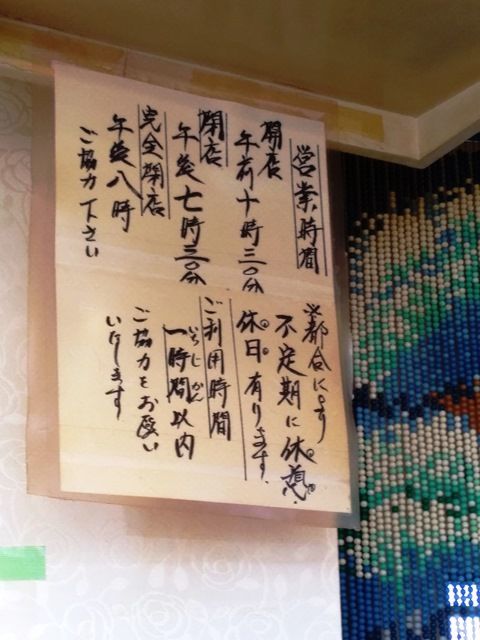 営業時間
開店
午前十時三〇分
閉店
午後七時三〇分
完全閉店
午後八時
ご協力下さい
※都合により
不定期に休憩
休日有ります。
ご利用時間
いちじかん
一時間以内
ご協力をお願い
いたします